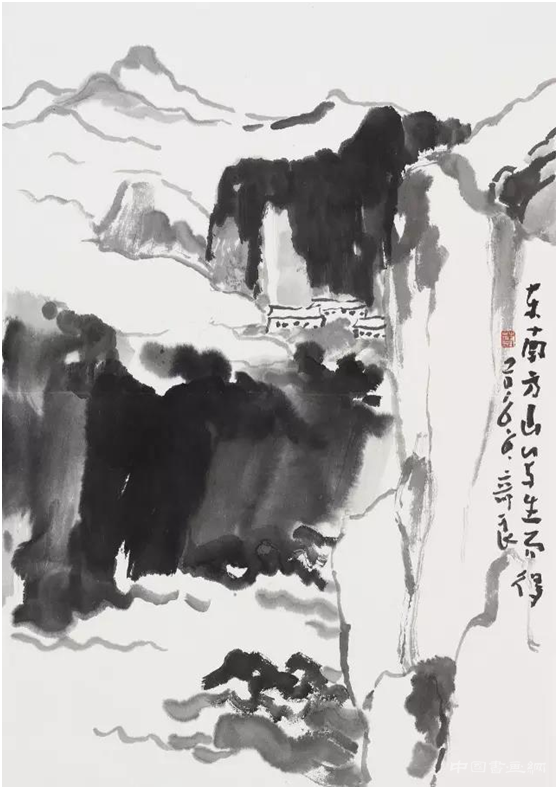 东南方山写生而得
2016.6.
中国书画报